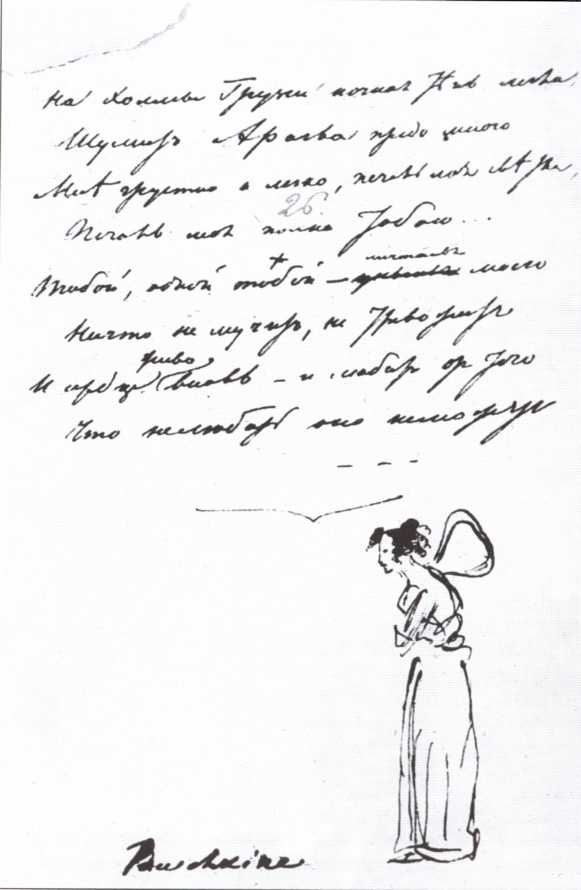 На холмы Грузіи ночная тѣнь легла,
Шумитъ Арагва предо мною
Мнѣ грустно и легко, печаль моя свѣтла,
26.
Печаль моя полна Тобою...
Тобой, одной тобой — унынья моего
Ничто не мучитъ, не тревожитъ
И сердце вновь — и любитъ от того
Что не любить оно не можетъ
Pouchkine